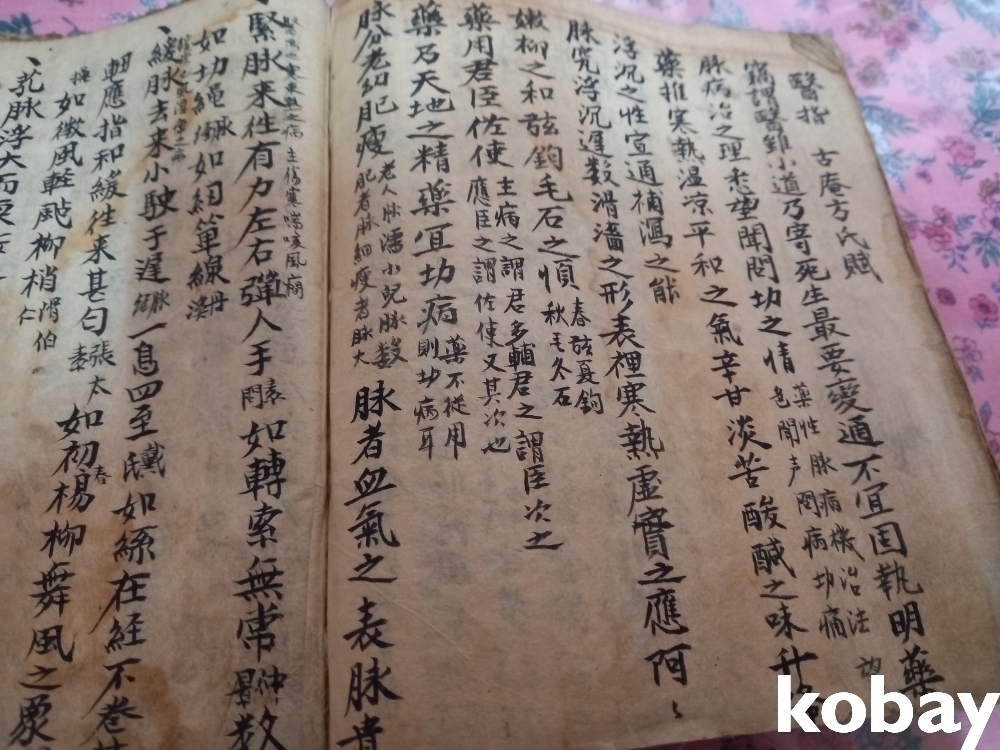 醫指 古庵方氏賦
竊謂醫雖小道乃寄死生最要變通不宜固執明藥
藥性脉病機治法望
色聞声問病切痛
脉病治之理悉望聞問切之情
藥推寒熱溫凉平和之氣辛甘淡苦酸醎之味升
浮沉之性宣通補瀉之能
脉究浮沉遲数滑濇之形表裡寒熱虛實之應阿阿
嫩柳之和弦鉤毛石之順
春弦夏鉤
秋毛冬石
藥用君臣佐使
主病之謂君多輔君之謂臣次之
應臣之謂佐使又其次也
藥乃天地之精藥宜切病
藥不從用
則切病耳
脉分老幼肥瘦
老人脉濡小児脉数
肥者脉細瘦者脉大
脉者血氣之表脉貴
主傷寒喘咳風癇
緊脉来徃有力左右彈人手
素問
如轉索無常
仲景
数
如切繩
脉
如紉箪線
丹溪
緩脉去来小駛于遲
脉
一息四至
戴氏
如絲在経不卷
朝應指和緩徃来甚匀
張太素
如初春楊柳舞風之象
如微風軽颭柳梢
滑伯仁
芤脉浮大而耎
kobay